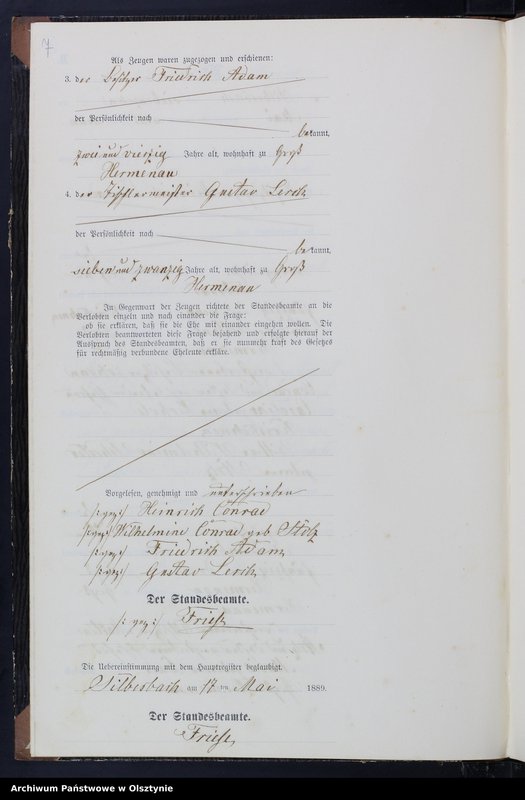 7
Als Zeugen waren zugezogen und erschienen:
3. der Besitzer Friedrich Adam
der Persönlichkeit nach
bekannt,
zwei und vierzig Jahre alt, wohnhaft zu Groß
Hermenau
4. der Tischlermeister Gustav Lerch
der Persönlichkeit nach
bekannt,
sieben und zwanzig Jahre alt, wohnhaft zu Groß
Hermenau
In Gegenwart der Zeugen richtete der Standesbeamte an die
Verlobten einzeln und nach einander die Frage:
ob sie erklären, daß sie die Ehe mit einander eingehen wollen. Die
Verlobten beantworteten diese Frage bejahend und erfolgte hierauf der
Ausspruch des Standesbeamten, daß er sie nunmehr kraft des Gesetzes
für rechtmäßig verbundene Eheleute erkläre.
Vorgelesen, genehmigt und unterschrieben
/:gez:/ Heinrich Conrad
/:gez:/ Wilhelmine Conrad geb Stolz
/:gez:/ Friedrich Adam
/:gez:/ Gustav Lerch
Der Standesbeamte.
/: gez :/ Friese
Die Uebereinstimmung mit dem Hauptregister beglaubigt.
Silberbach am 17 ten Mai 1889.
Der Standesbeamte.
Friese
Archiwum Państwowe w Olsztynie